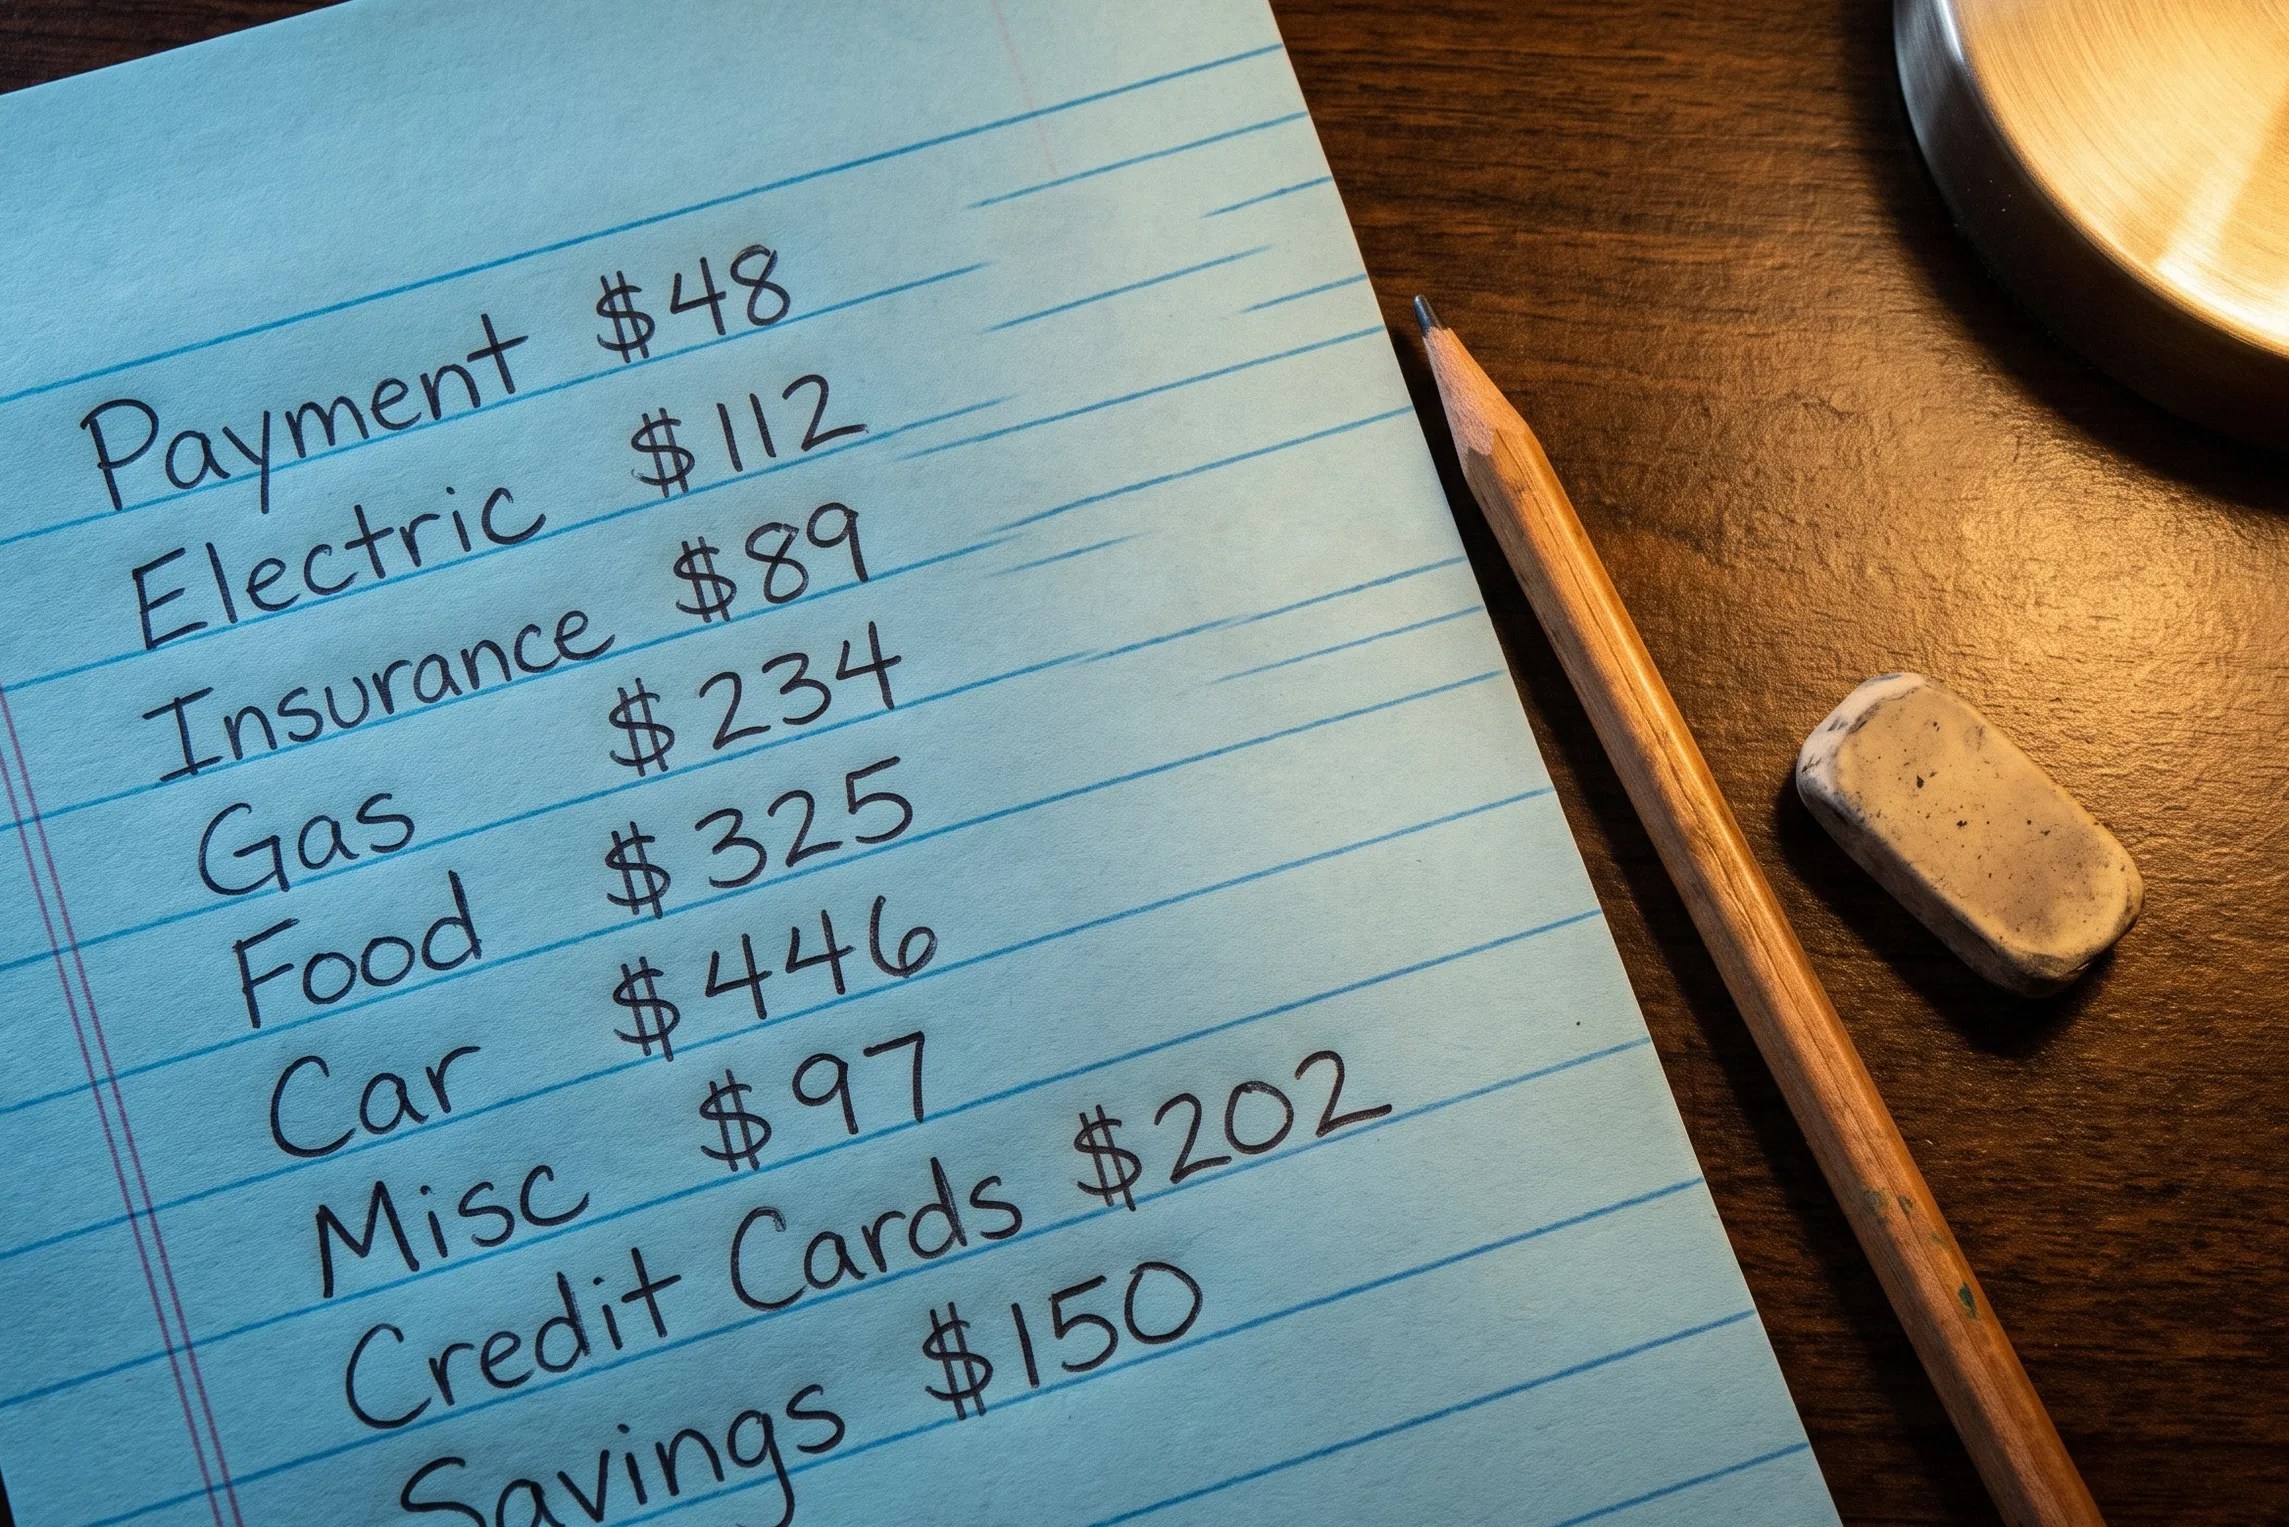 Payment $48
Electric $112
Insurance $89
Gas $234
Food $325
Car $446
Misc $97
Credit Cards $202
Savings $150